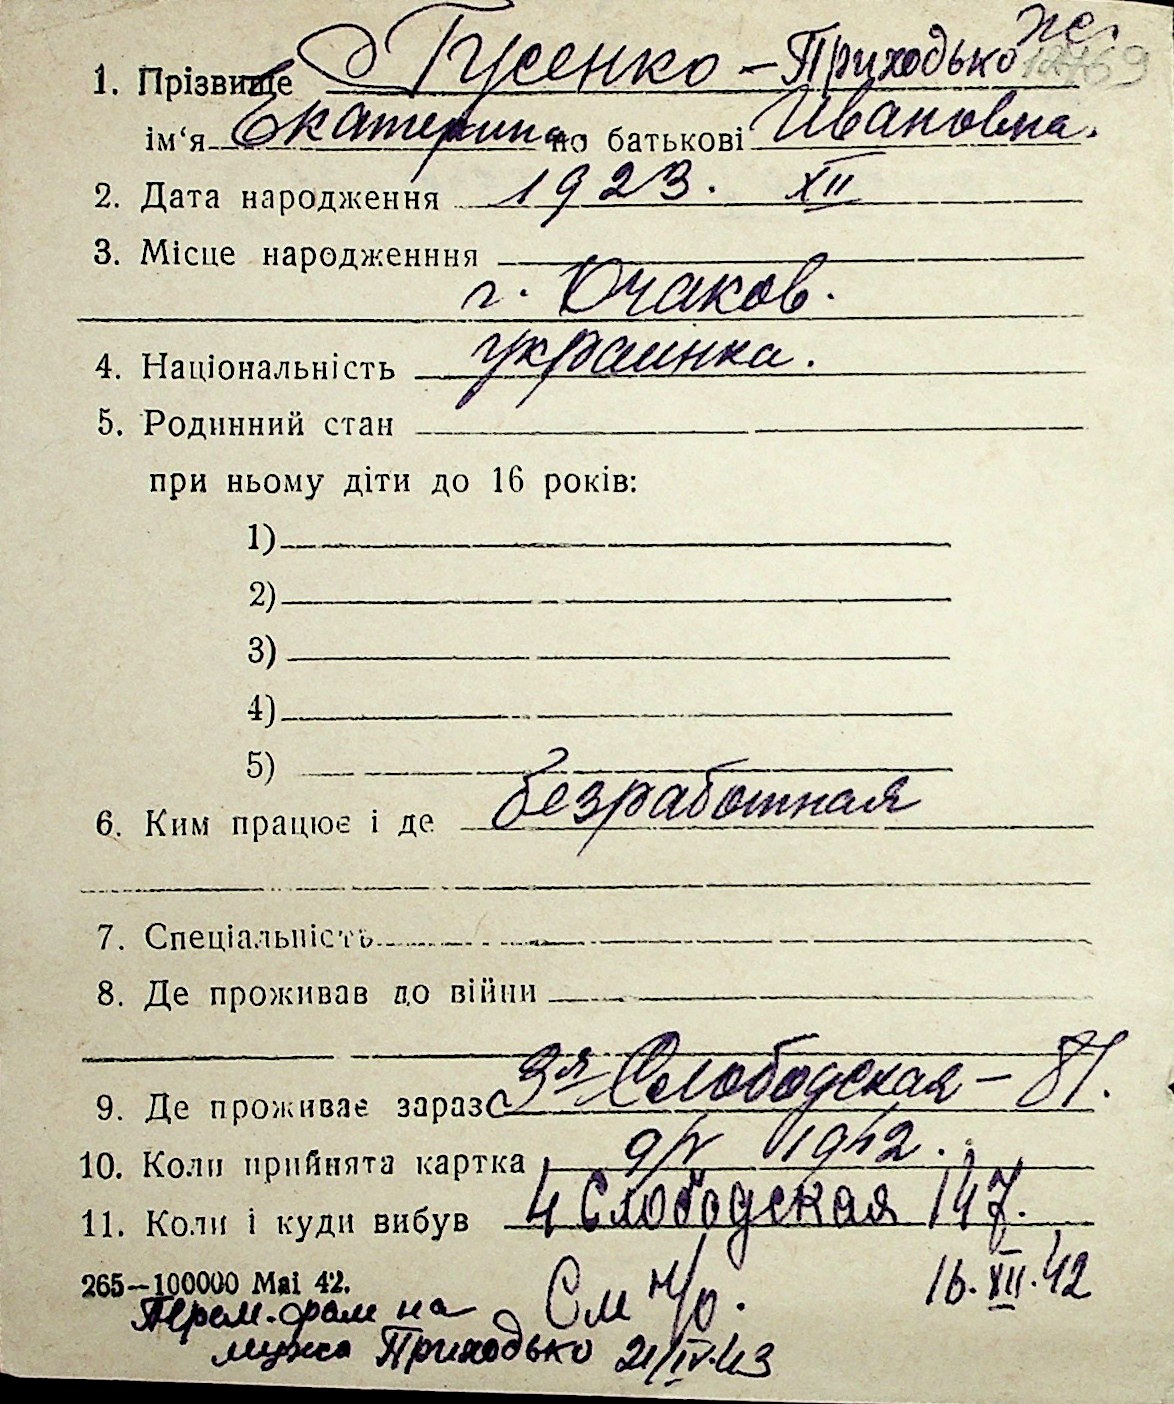 же.
12469
1. Прізвище Гусенко – Приходько
ім‘я Екатерина по батькові Ивановна.
2. Дата народження 1923. XII
3. Місце народженння
г. Очаков.
4. Національність украинка.
5. Родинний стан
при ньому діти до 16 років:
1)
2)
3)
4)
5)
6. Ким працює і де безработная
7. Спеціальність
8. Де проживав до війни
9. Де проживає зараз 3я Слободская – 81.
10. Коли прийнята картка 9/V 1942.
11. Коли і куди вибув 4 Слободская 147.
265—100000 Mai 42. См н/о. 16.XII.42
Перем. фам на
мужа Приходько 21/IV.43